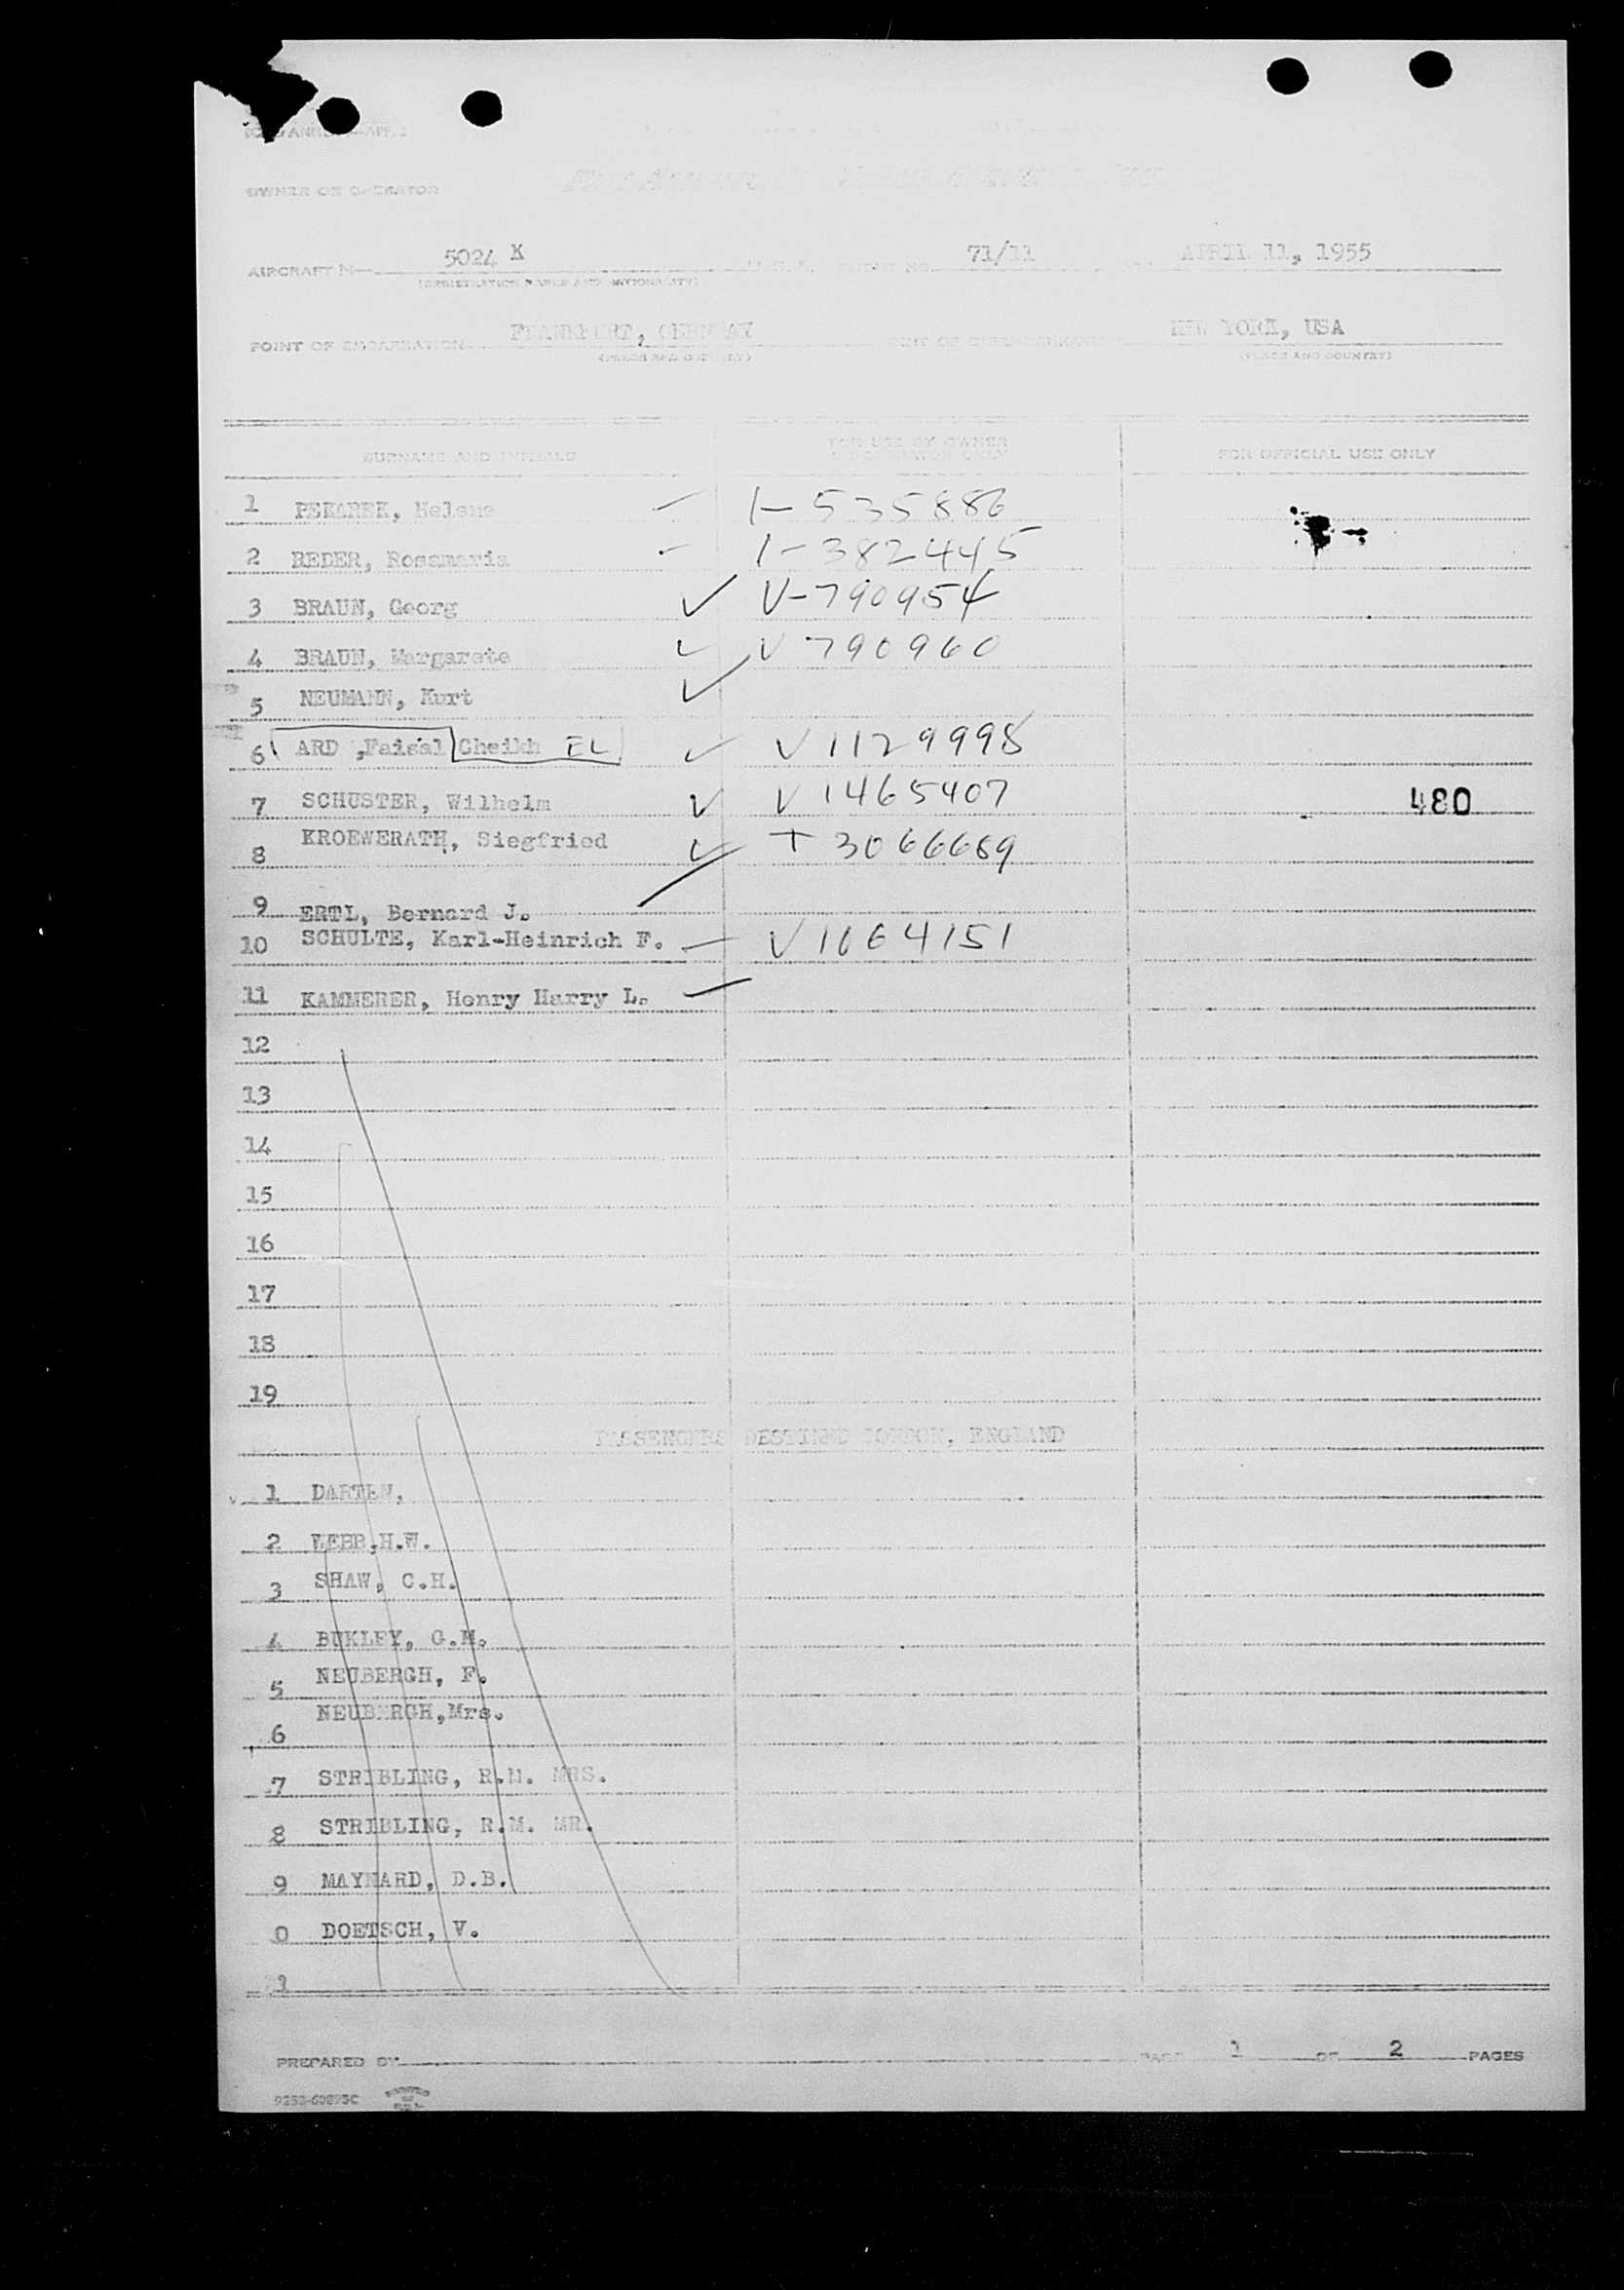 OWNER OR OPERATOR
AIRCRAFT 5024 K 71/11 APRIL 11, 1955
(REGISTRATION MARKS AND NATIONALITY)
POINT OF EMBARKATION FRANKFURT, GERMANY NEW YORK, USA
(PLACE AND COUNTRY) (PLACE AND COUNTRY)
SURNAME AND INITIALS FOR USE BY OWNER OR OPERATOR ONLY FOR OFFICIAL USE ONLY
1 PEKAREK, Helene – I-535886
2 REDER, Rosemarie – I-382445
3 BRAUN, Georg ✓ V-790954
4 BRAUN, Margarete ✓ V 790960
5 NEUMANN, Kurt ✓
6 ARD ,Faisal Cheikh EL ✓ V 1129998
7 SCHUSTER, Wilhelm ✓ V 1465407 480
8 KROEWERATH, Siegfried ✓ T 3066689
9 ERTL, Bernard J.
10 SCHULTE, Karl-Heinrich F. – V1064151
11 KAMMERER, Henry Harry L. –
12
13
14
15
16
17
18
19
PASSENGERS DESTINED LONDON, ENGLAND
1 DARTEN,
2 WEBB,H.W.
3 SHAW, C.H.
4 BUKLEY, G.M.
5 NEUBERGH, F.
6 NEUBERGH,Mrs.
7 STRIBLING, R.M. MRS.
8 STRIBLING, R.M. MR.
9 MAYNARD, D.B.
0 DOETSCH, V.
PREPARED BY PAGE 1 OF 2 PAGES